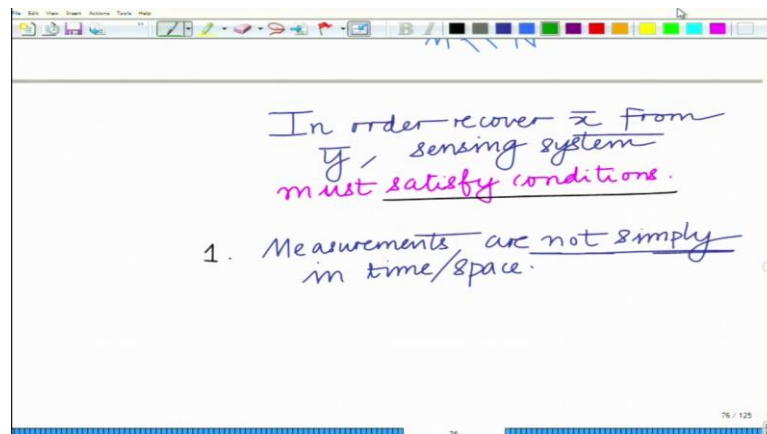 File Edit View Insert Actions Tools Help
B I
M << N
In order recover x̅ from
y̅, sensing system
must satisfy conditions.
1. Measurements are not simply
in time/space.
76 / 125
76